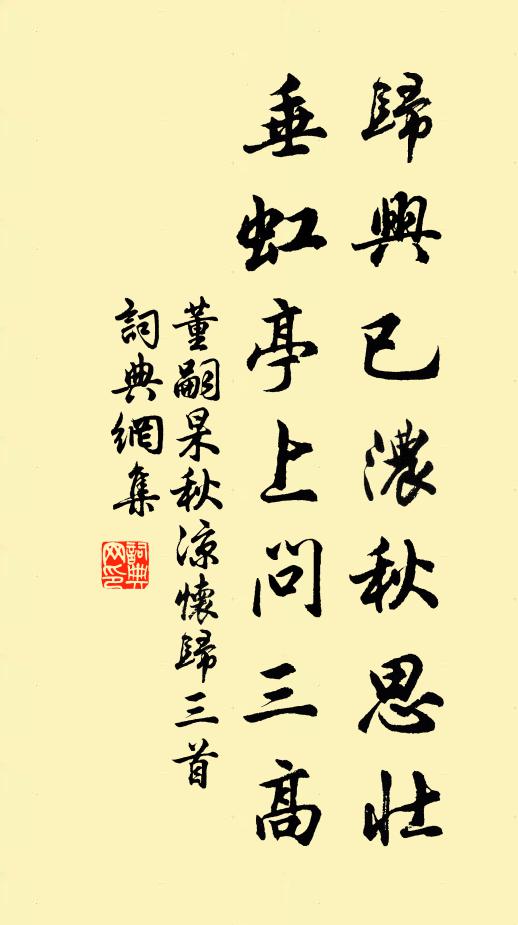 歸興已濃秋思壯
垂虹亭上問三高
董嗣杲秋涼懷歸三首
詞典網集
詞典网印